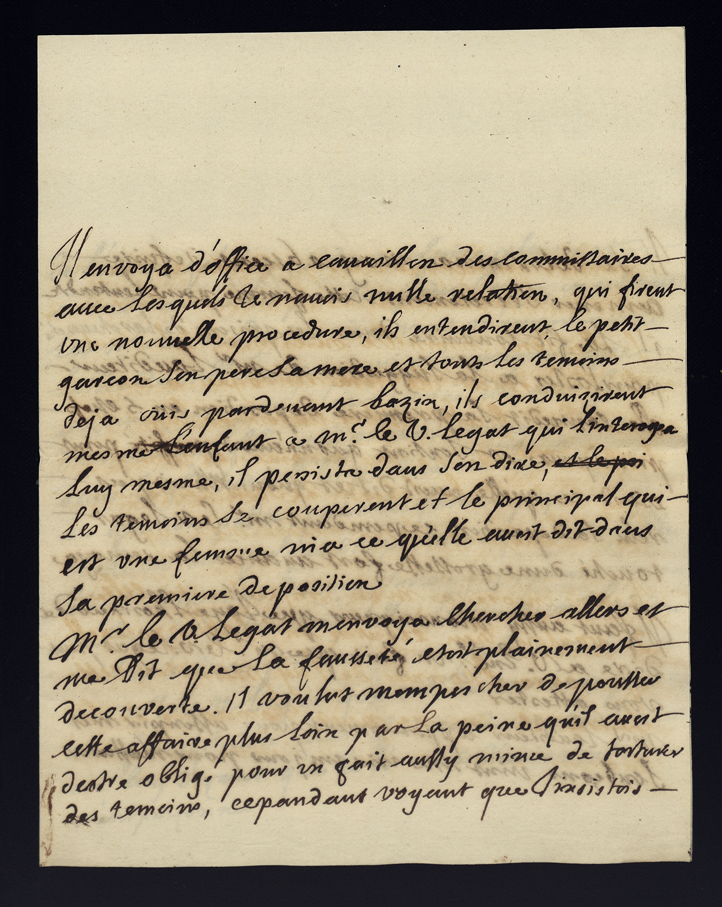 Il envoya d'office a cavaillon des commissaires
avec lesquels Je navois nulle relation, qui firent
une nouvelle procedure, ils entendirent le petit
garcon Son pere La mere et touts les temoins
deja ouis pardevant bazin, ils conduizirent
mesme l'enfant a mr. le V. legat qui linterogea
Luy mesme, il persista dans Son dire, et le pri
Les temoins Se couperent et le principal qui
est une femme nia ce qu'elle avoit dit dans
sa premiere deposition
Mr. le V. Legat menvoya chercher allors et
me Dit que La fausseté etoit plainement
decouverte. Il voulut mempescher de pousser
cette affaire plus loin par La peine qu'il avoit
destre obligé pour un fait aussy mince de torturer
des temoins, cepandant voyant que Jinsistois